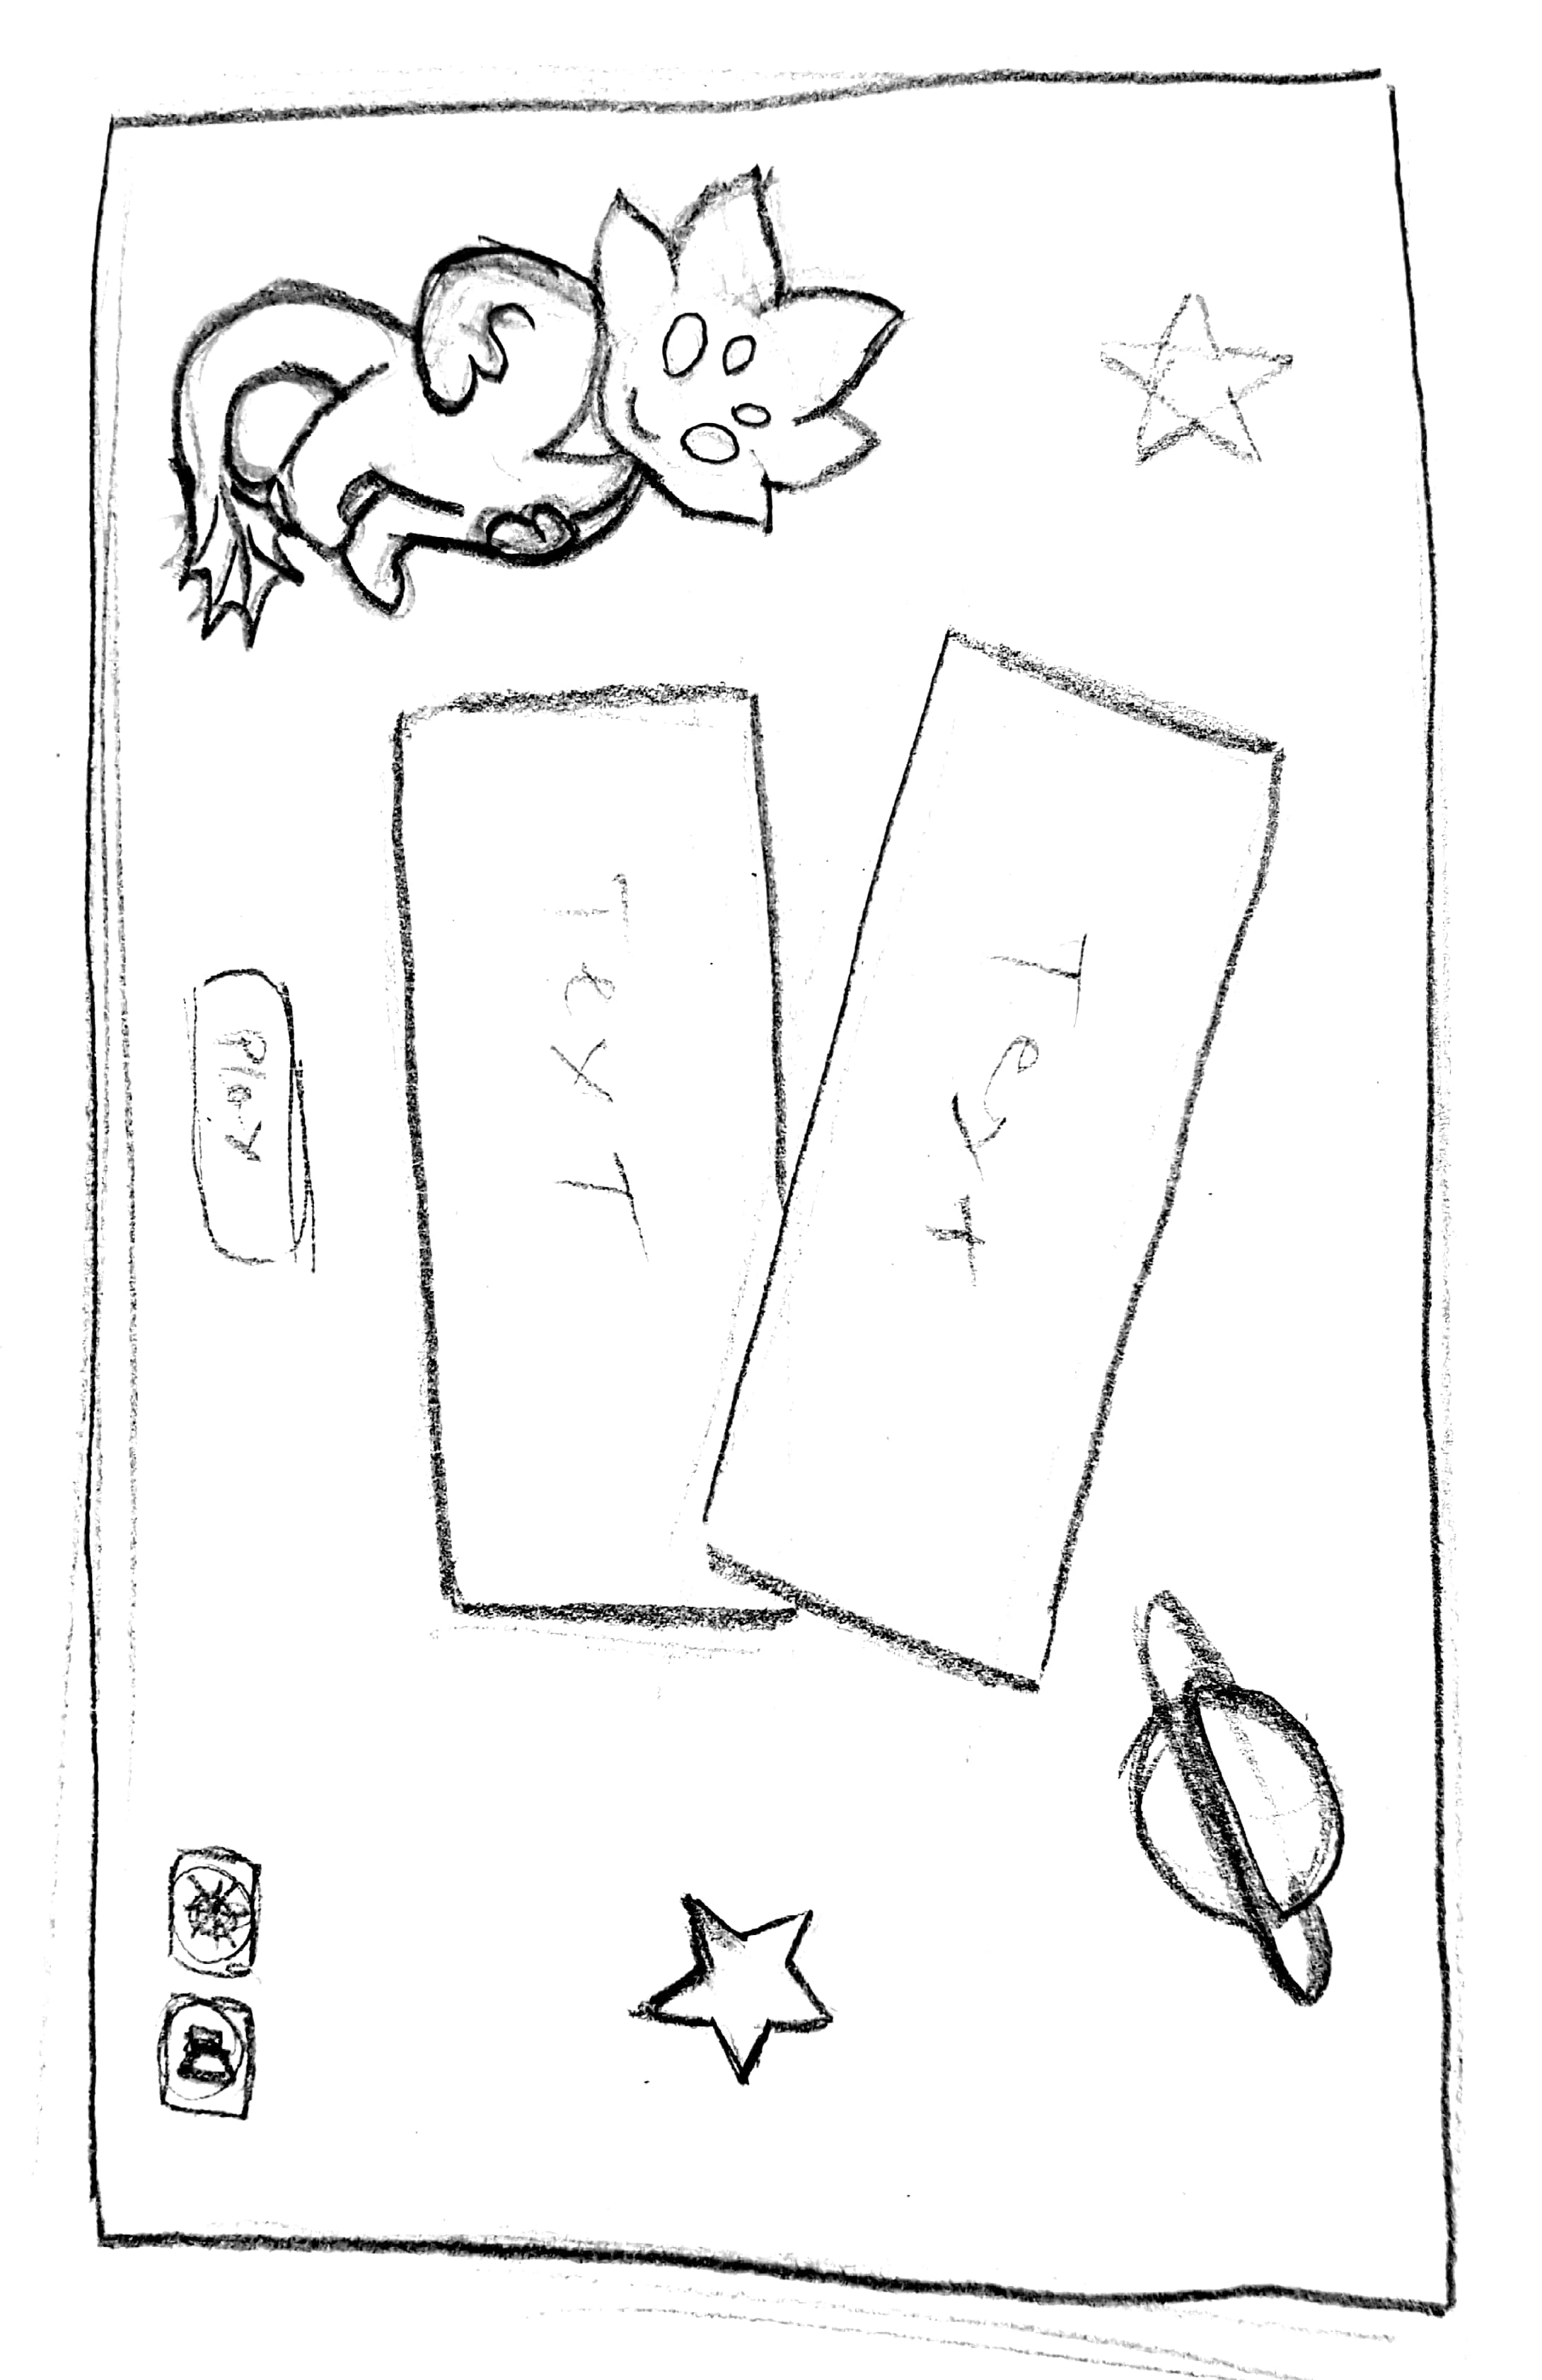 Text
TexT
Play